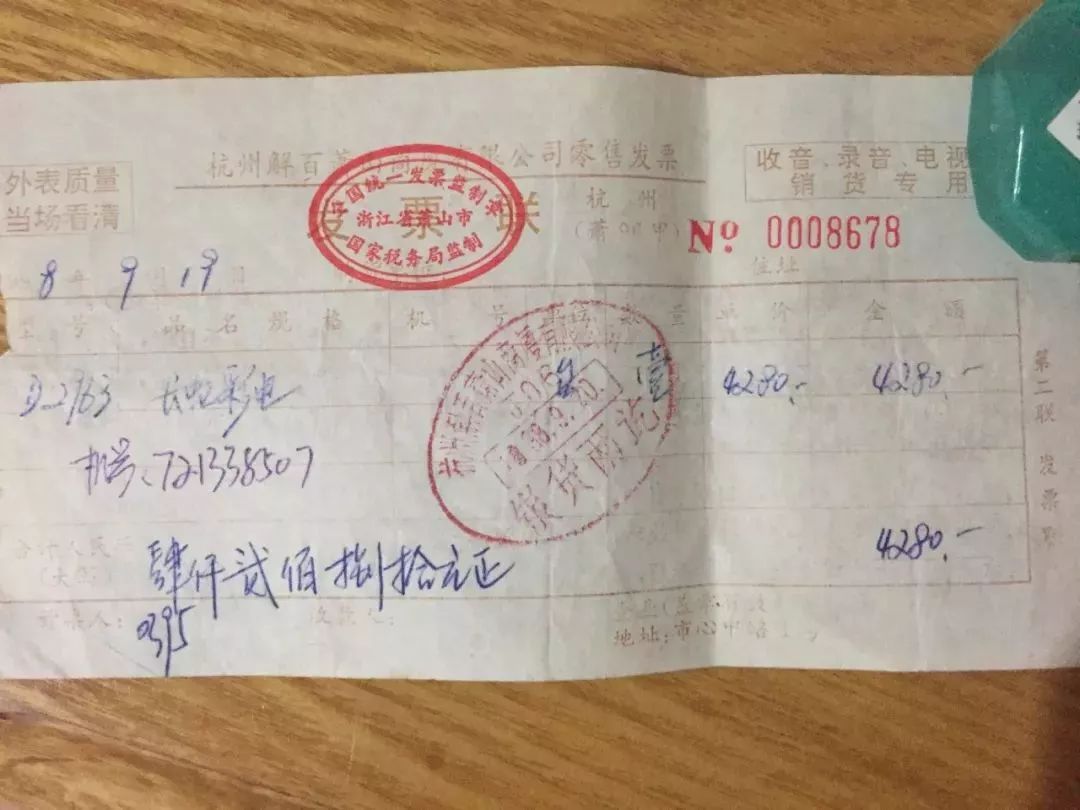 杭州解百萧山商厦有限公司零售发票
外表质量
当场看清
发票联
中国统一发票监制章
浙江省萧山市
国家税务局监制
杭州
收音、录音、电视
销货专用
Nº 0008678
住址
8年9月19日
型号 品名规格 机号 单位 数量 单价 金额
长虹彩电 台 壹 4280.- 4280.-
机号:721338507
银货两讫
第二联 发票联
合计人民币
(大写)
肆仟贰佰捌拾元正 4280.-
0395
收款人:
地址:市心中路